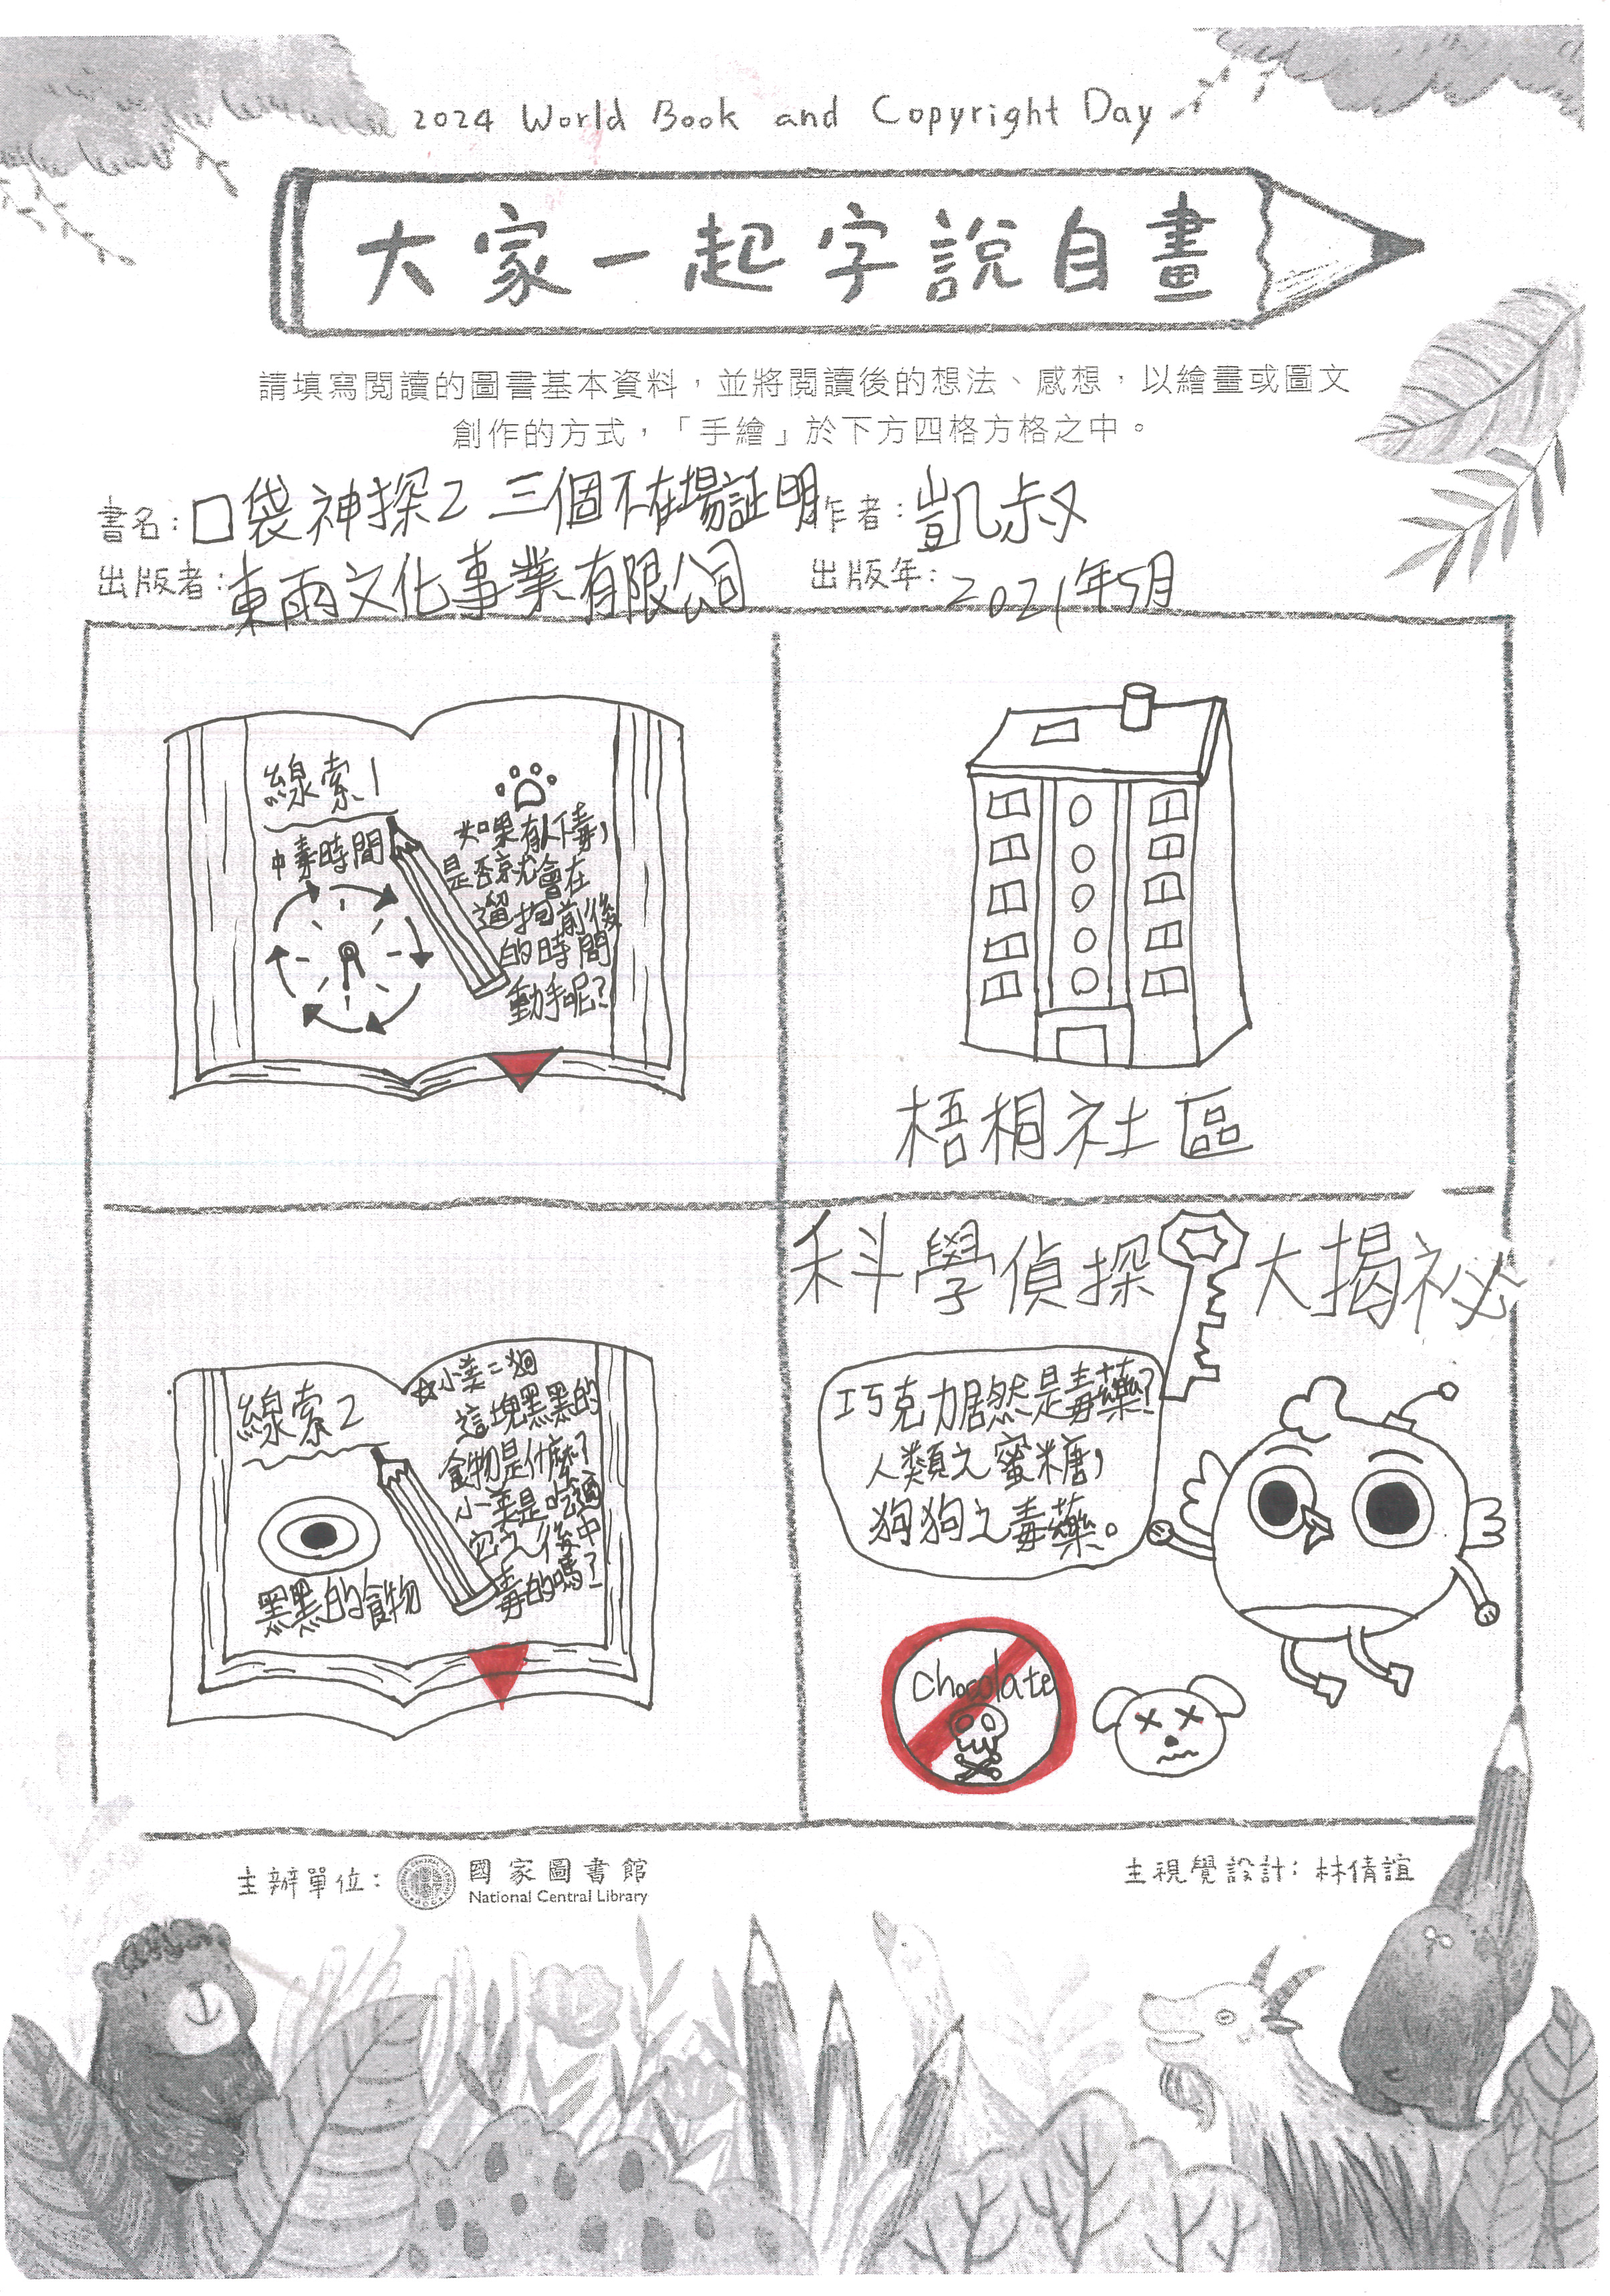 2024 World Book and Copyright Day
大家一起字說自畫
請填寫閱讀的圖書基本資料，並將閱讀後的想法、感想，以繪畫或圖文
創作的方式，「手繪」於下方四格方格之中。
書名：口袋神探2 三個不在場証明 作者：凱叔
出版者：東雨文化事業有限公司 出版年：2021年5月
線索1
中毒時間
如果有人下毒，
是否就會在
遛狗前後
的時間
動手呢？
梧桐社區
線索2
黑黑的食物
☆小美=狗
這塊黑黑的
食物是什麼？
小美是吃過
它之後中
毒的嗎？
科學偵探大揭祕
巧克力居然是毒藥？
人類之蜜糖，
狗狗之毒藥。
Chocolate
主辦單位：國家圖書館
National Central Library
主視覺設計：林倩誼